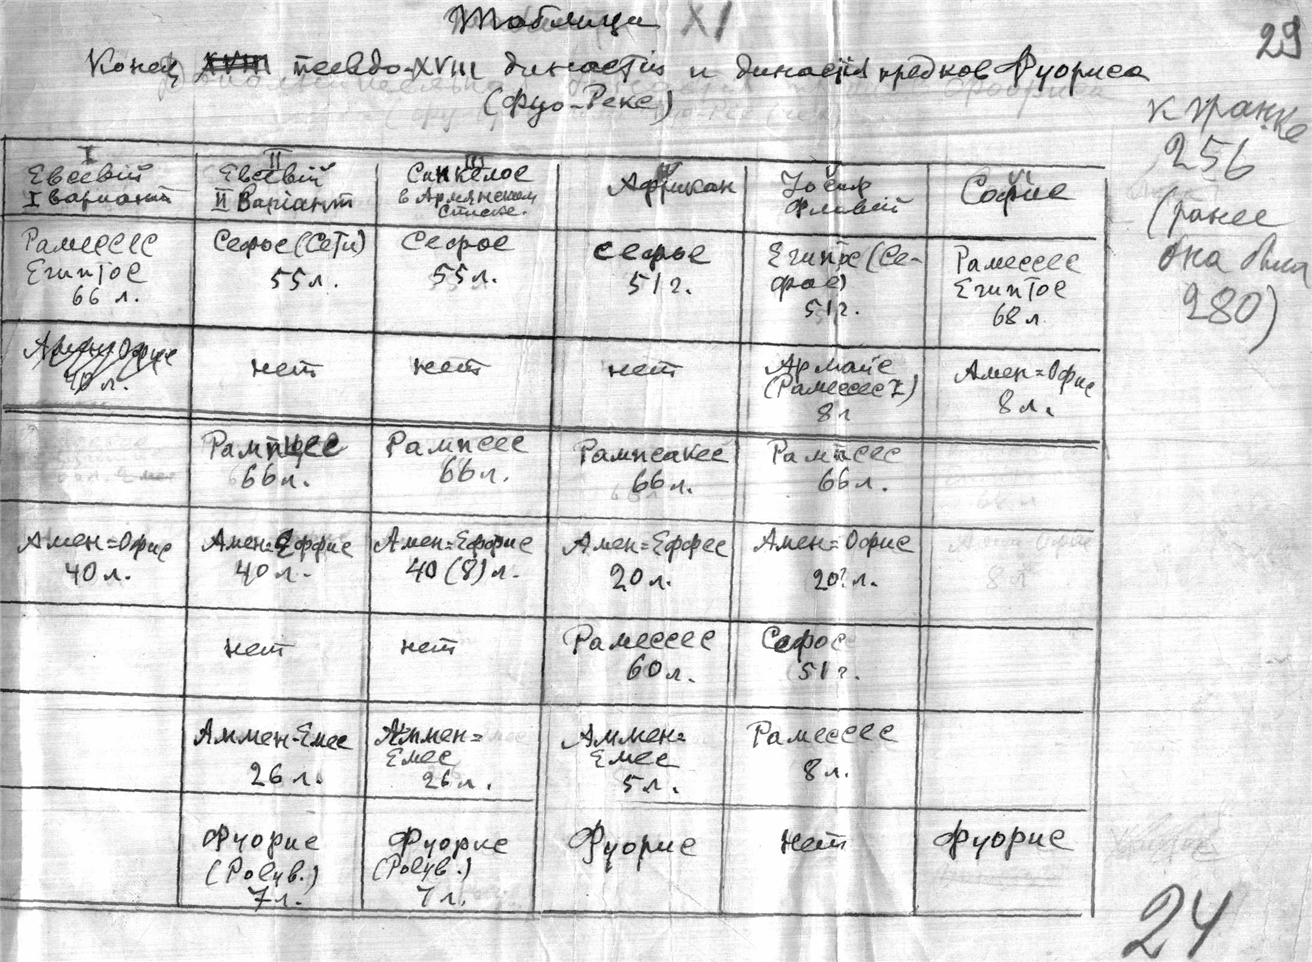 Таблица XI
29
Конец псевдо-XVIII династіи и династія предков Фуориса
(Фуо-Рекс)
к гранке
256
(ранее
она была
280)
I
Евсевій
I Варіант
II
Евсевій
II Варіант
III
Синкелос
в Армянском
списке.
IV
Африкан
V
Іосиф
Флавій
VI
Софис
Рамессес
Египтос
66 л.
Сефос (Сети)
55 л.
Сефос
55 л.
Сефос
51 г.
Египтос (Се-
фос)
51 г.
Рамессес
Египтос
68 л.
Амен Офис
40 л.
нет
нет
нет
Армаис
(Рамессес I)
8 л
Амен=Офис
8 л.
Рампсес
66 л.
Рампсес
66 л.
Рампсакес
66 л.
Рампсес
66 л.
Амен=Офис
40 л.
Амен=Еффис
40 л.
Амен=Еффис
40 (8) л.
Амен=Еффес
20 л.
Амен=Офис
20? л.
нет
нет
Рамессес
60 л.
Сефос
51 г.
Аммен-Емес
26 л.
Аммен=
Емес
26 л.
Аммен=
Емес
5 л.
Рамессес
8 л.
Фуорис
(Polyb.)
7 л.
Фуорис
(Polyb.)
7 л.
Фуорис
нет
Фуорис
24